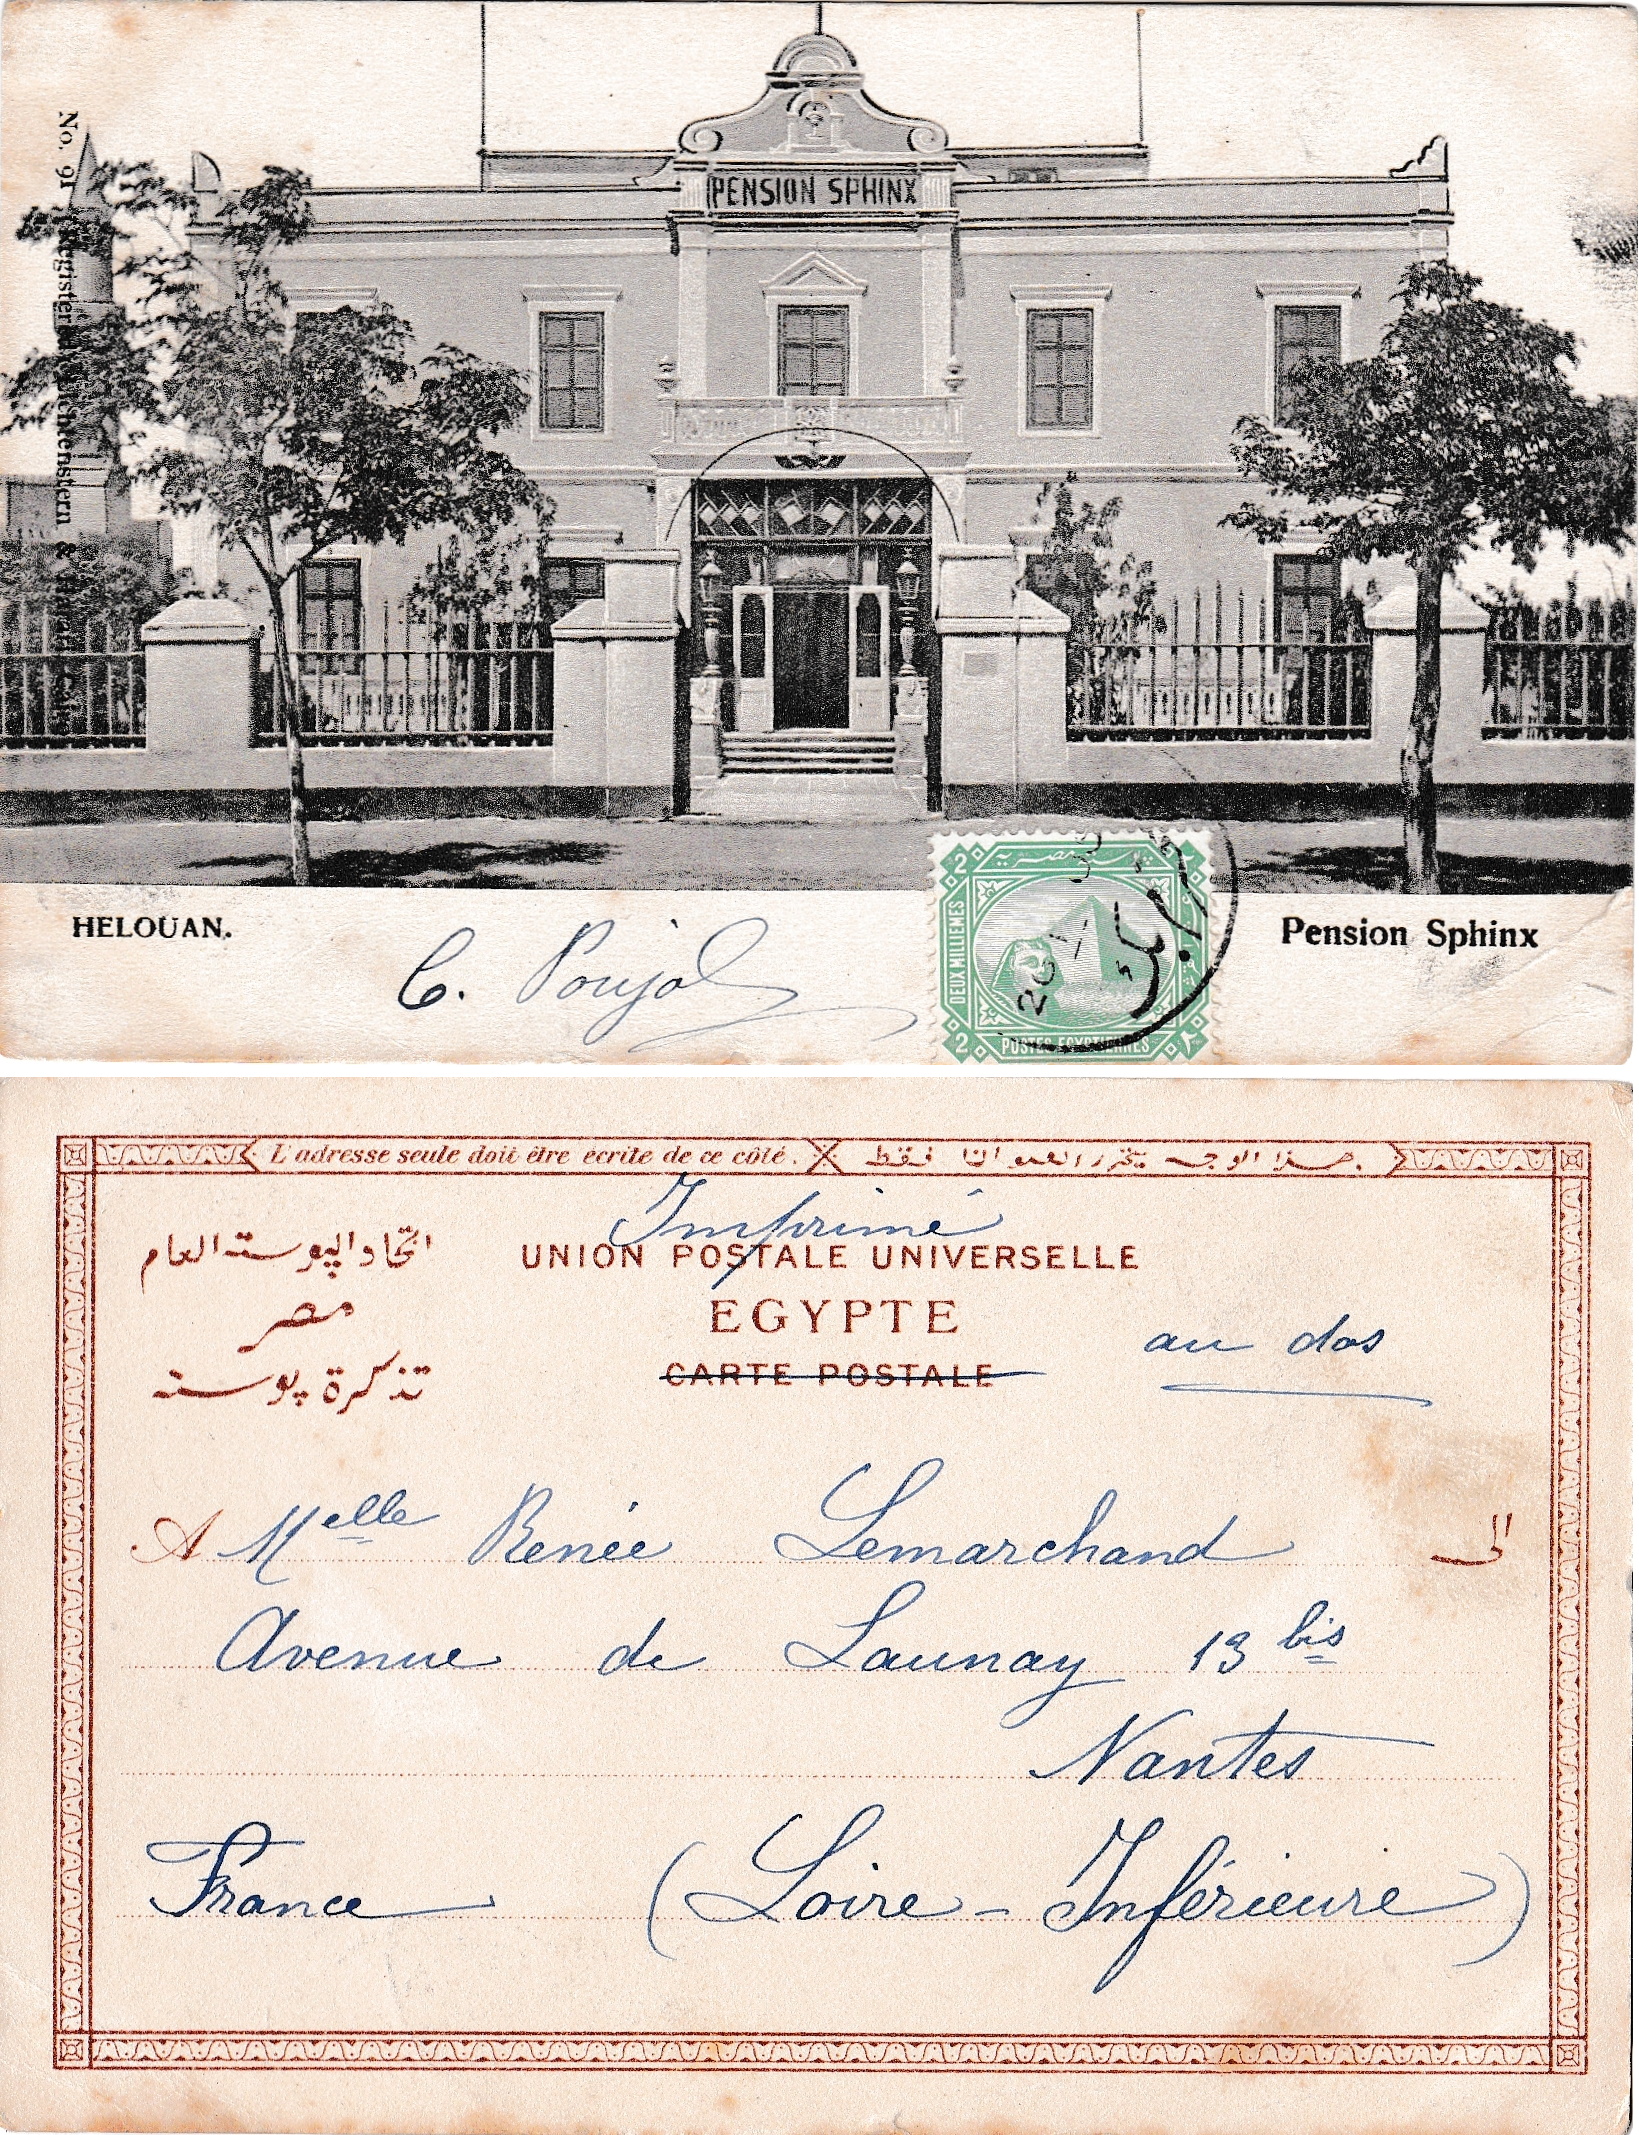 PENSION SPHINX
No. 91 Register Lichtenstern & Harari Cairo
HELOUAN.
Pension Sphinx
C. Poujol
2
DEUX MILLIEMES
POSTES EGYPTIENNES
2
٢
L'adresse seule doit être écrite de ce côté.
هذا الوجه يتحرر العنوان فقط.
Imprimé
اتحاد البوسته العام
UNION POSTALE UNIVERSELLE
مصر
EGYPTE
au dos
تذكرة بوسته
CARTE POSTALE
A Melle Renée Lemarchand الى
Avenue de Launay 13 bis
Nantes
France (Loire-Inférieure)